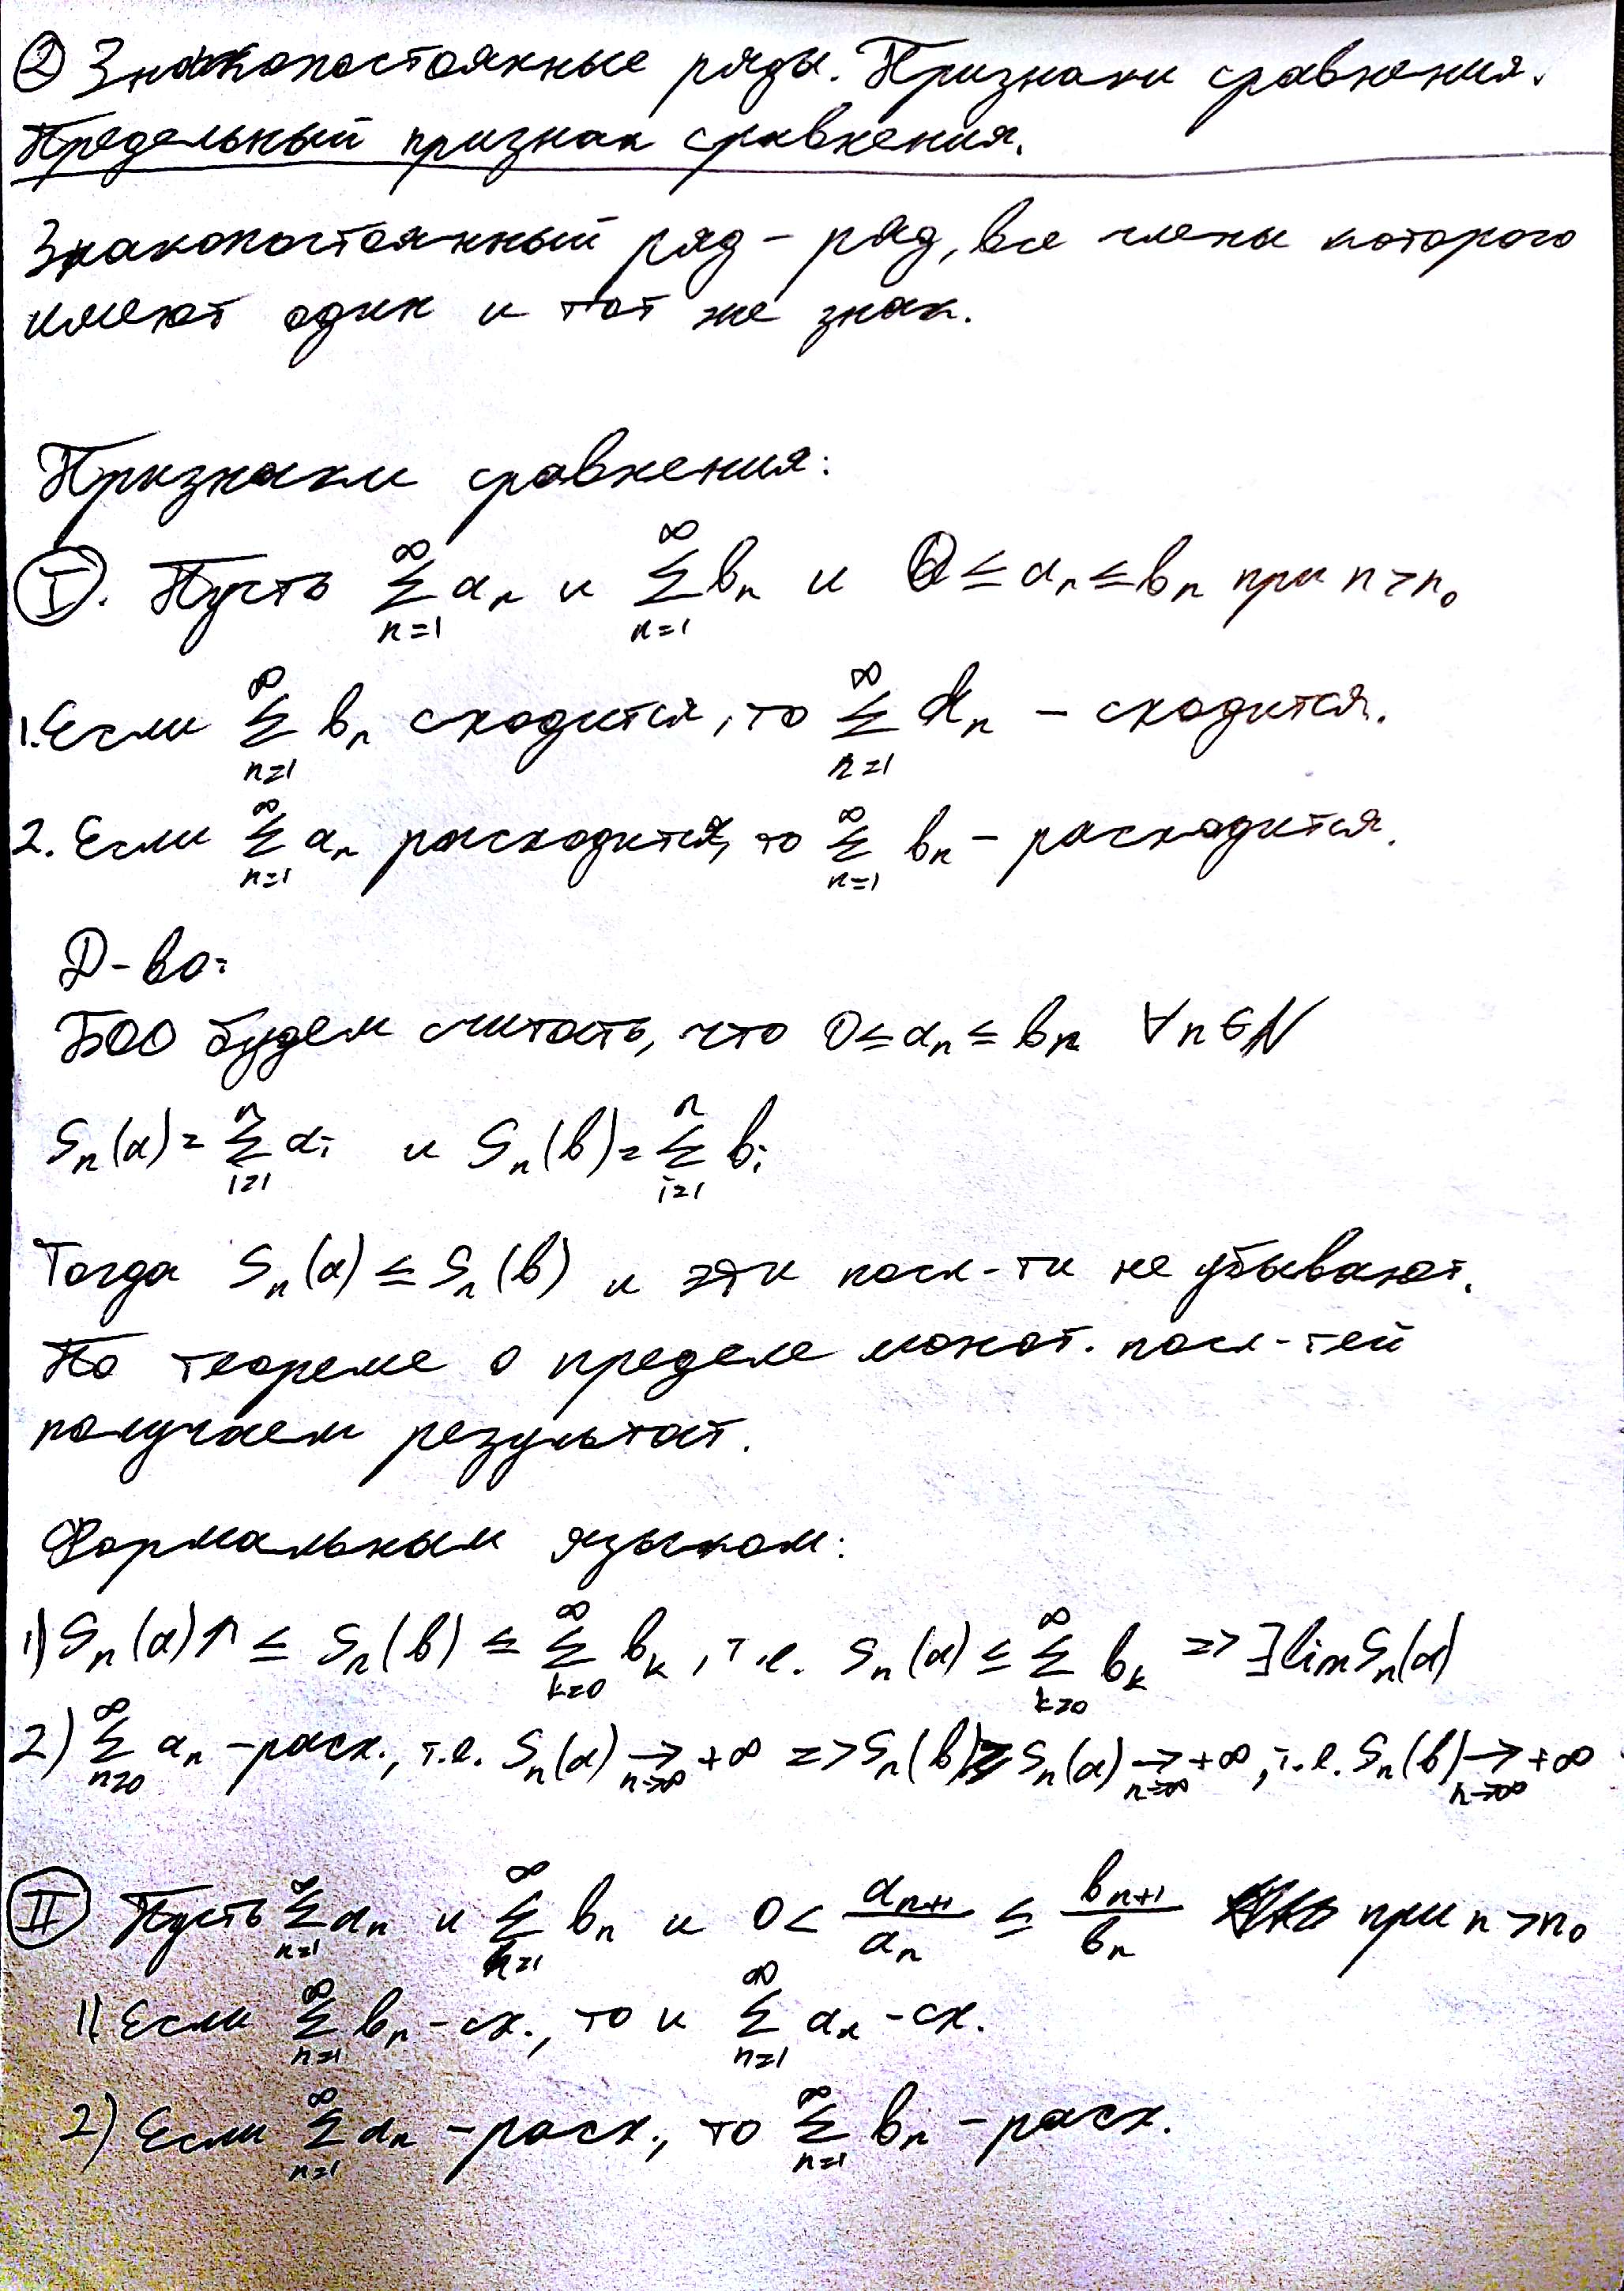 ② Знакопостоянные ряды. Признаки сравнения.
Предельный признак сравнения.
Знакопостоянный ряд – ряд, все члены которого
имеют один и тот же знак.
Признаки сравнения:
Ⓘ. Пусть ∑_{n=1}^{∞} a_n и ∑_{n=1}^{∞} b_n и 0 ≤ a_n ≤ b_n при n > n_0
1. Если ∑_{n=1}^{∞} b_n сходится, то ∑_{n=1}^{∞} a_n – сходится.
2. Если ∑_{n=1}^{∞} a_n расходится, то ∑_{n=1}^{∞} b_n – расходится.
Д-во:
БОО будем считать, что 0 ≤ a_n ≤ b_n ∀n∈N
S_n(a) = ∑_{i=1}^{n} a_i и S_n(b) = ∑_{i=1}^{n} b_i
Тогда S_n(a) ≤ S_n(b) и эти посл-ти не убывают.
По теореме о пределе монот. посл-тей
получаем результат.
Формальным языком:
1) S_n(a)↑ ≤ S_n(b) ≤ ∑_{k=0}^{∞} b_k, т.е. S_n(a) ≤ ∑_{k=0}^{∞} b_k => ∃ lim S_n(a)
2) ∑_{n=0}^{∞} a_n – расх., т.е. S_n(a) →_{n→∞} +∞ => S_n(b) ≥ S_n(a) →_{n→∞} +∞, т.е. S_n(b) →_{n→∞} +∞
(II) Пусть ∑_{n=1}^{∞} a_n и ∑_{n=1}^{∞} b_n и 0 < a_{n+1}/a_n ≤ b_{n+1}/b_n при n > n_0
1) Если ∑_{n=1}^{∞} b_n – сх., то и ∑_{n=1}^{∞} a_n – сх.
2) Если ∑_{n=1}^{∞} a_n – расх., то ∑_{n=1}^{∞} b_n – расх.